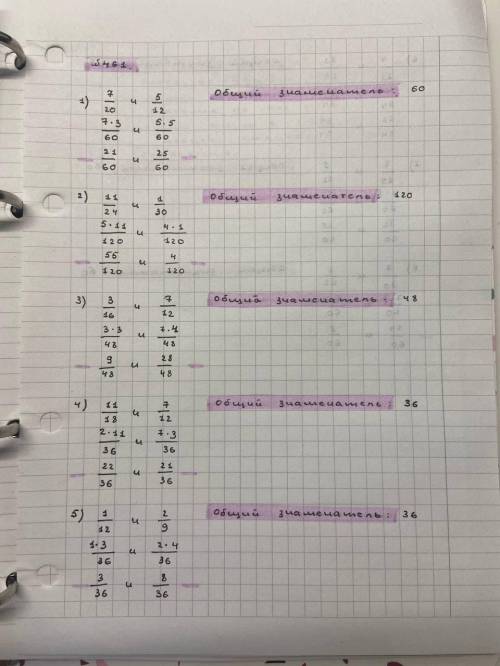 №461.
1) 7/20 и 5/12 Общий знаменатель: 60
7·3/60 и 5·5/60
21/60 и 25/60
2) 11/24 и 1/30 Общий знаменатель: 120
5·11/120 и 4·1/120
55/120 и 4/120
3) 3/16 и 7/12 Общий знаменатель: 48
3·3/48 и 7·4/48
9/48 и 28/48
4) 11/18 и 7/12 Общий знаменатель: 36
2·11/36 и 7·3/36
22/36 и 21/36
5) 1/12 и 2/9 Общий знаменатель: 36
1·3/36 и 2·4/36
3/36 и 8/36